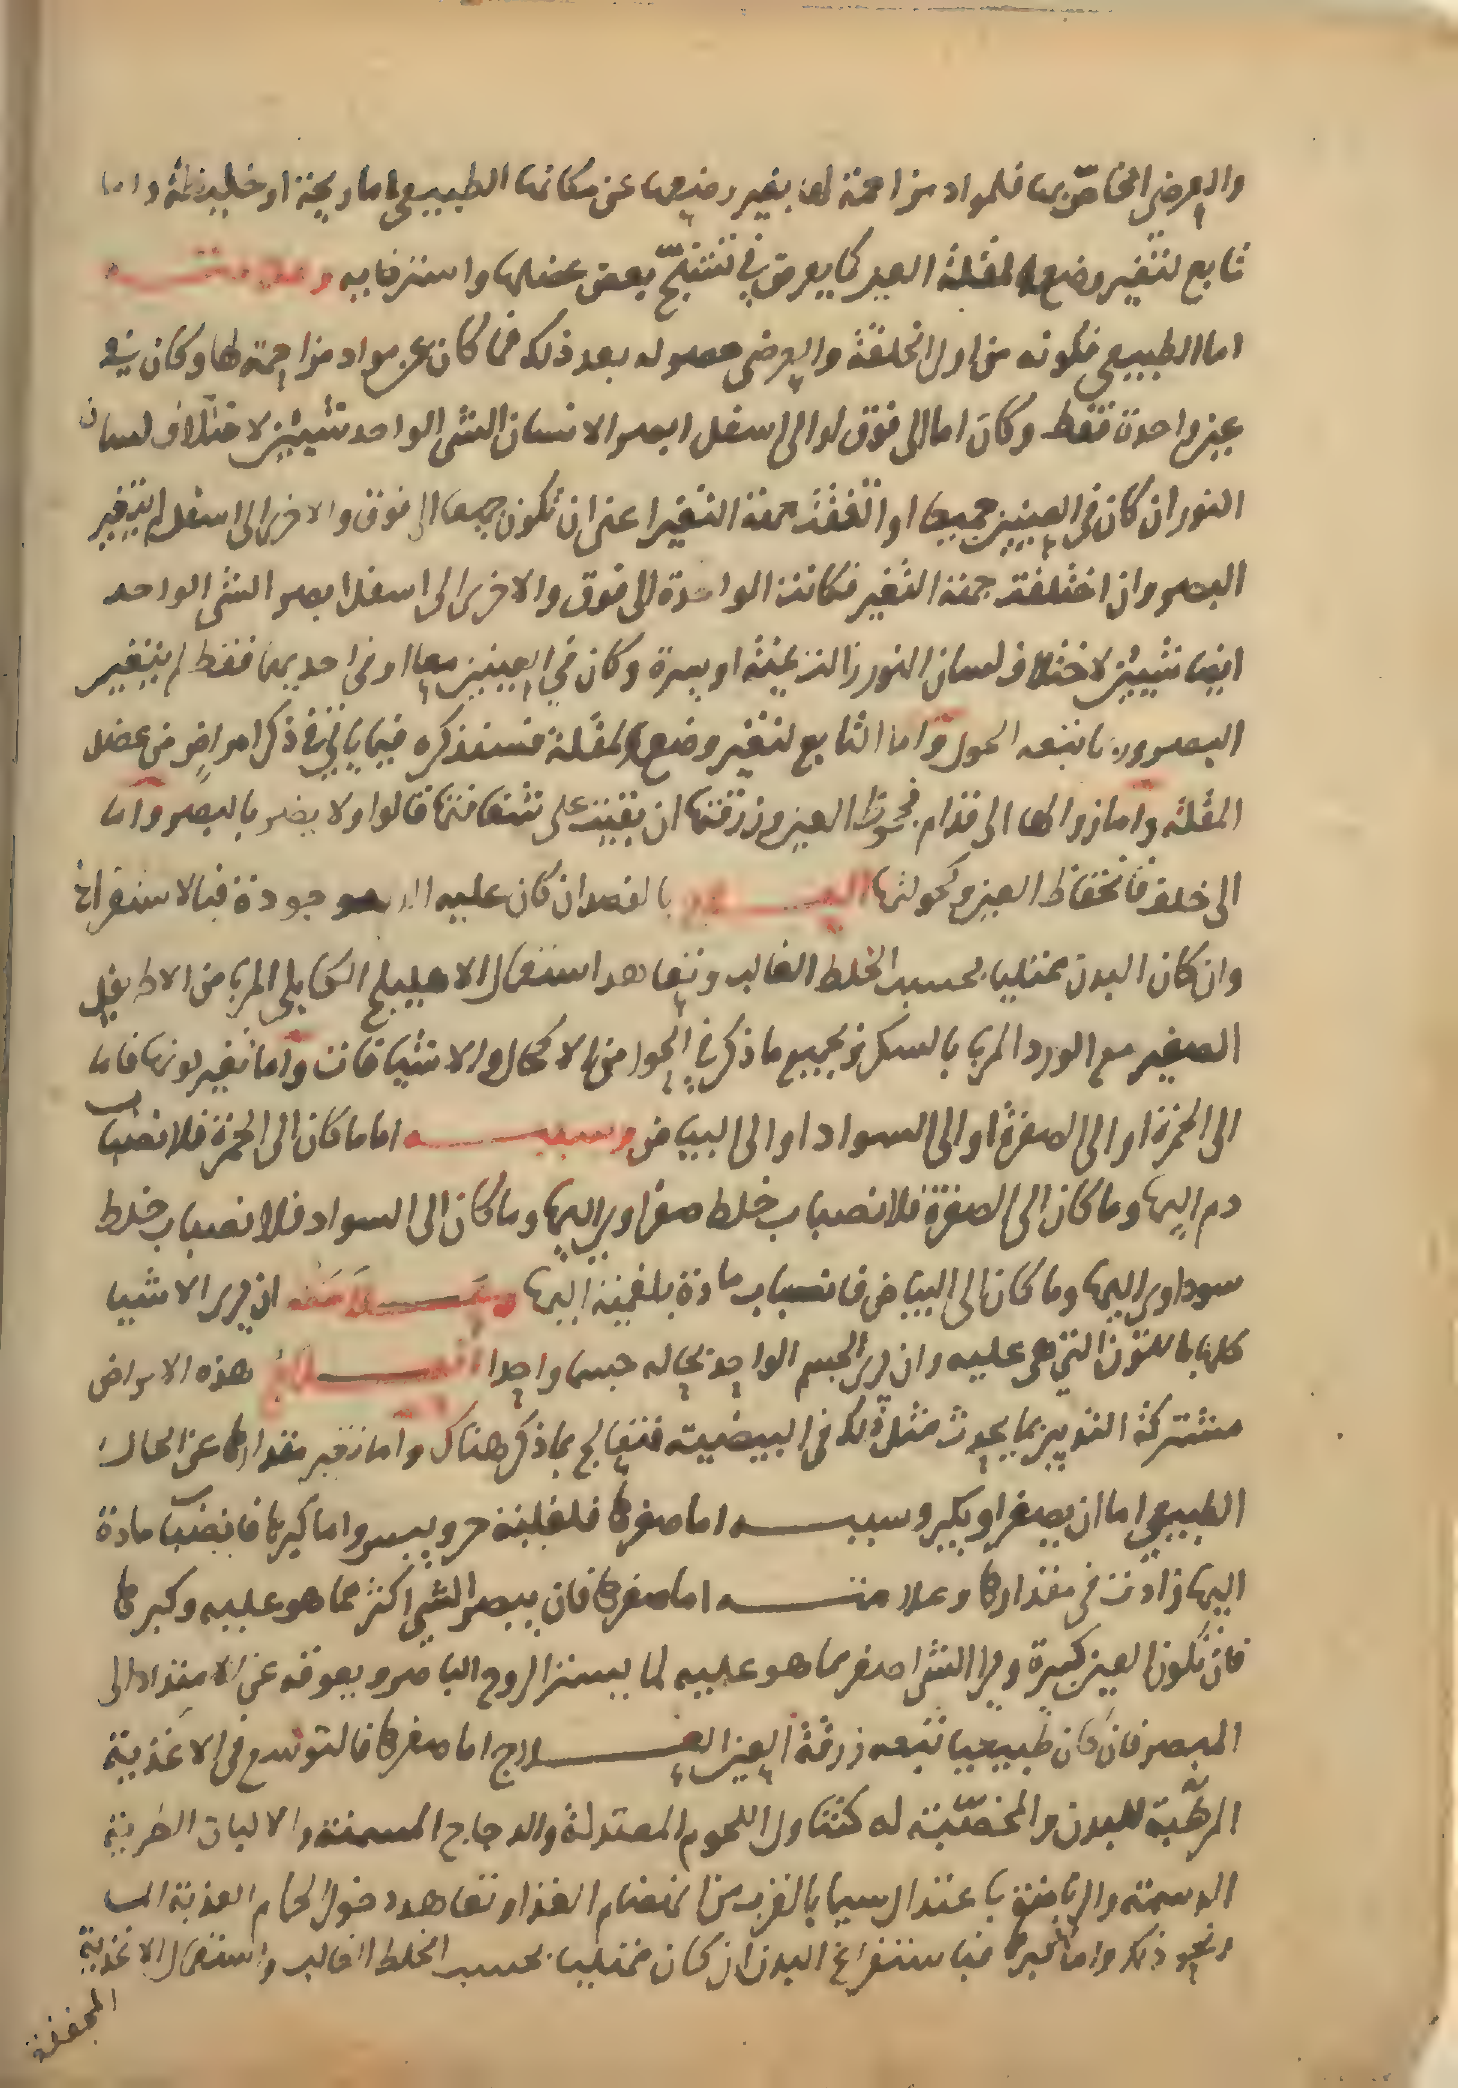 والعرضى الخاص بها فلمواد مزاحمة لها بغير وضعها عن مكانها الطبيعى اما ريحية او خليطة واما
تابع لتغير وضع المقلة العير كما يعرض فى تشنج بعض عضلها واسترخايه وعلامته
اما الطبيعى فكونه من اول الخلقة والعرضى حصوله بعد ذلك فما كان عن مواد مزاحمة لها وكان فى
عين واحدة فقط وكان اما الى فوق او الى اسفل ابصر الانسان الشى الواحد شيئين لاختلاف لسان
النور ان كان فى العينين جميعا او اتفقت جهة التغير اعنى ان تكون جميعا الى فوق والاخرى الى اسفل لم يتغير
البصر وان اختلفت جهة التغير فكانت الواحدة الى فوق والاخرى الى اسفل ابصر الشى الواحد
ايضا شيئين لاختلاف لسان النور زالتز يمنة او يسرة وكان فى العينين معا او فى احديهما فقط لم يتغير
البصر وربما تبعه الحول واما التابع لتغير وضع المقلة فسنذكره فيما ياتى فى ذكر امراض من عضل
المقلة واما زوالها الى قدام فجحوظ العين وزرقتها ان بقيت على شفافتها قالوا ولا يضر بالبصر واما
الى خلف فانخفاظ العين وكحولتها العلاج بالفصد ان كان علبه الدم موجودة فبالاستفراغ
وان كان البدن ممتليا بحسب الخلط الغالب وتعاهد استعمال الاهليلج الكابلى المربا من الاطريفل
الصغير مع الورد المربا بالسكر وبجميع ما ذكر فى الحول من الاكحال والاشيافات واما تغير لونها فاما
الى الحمرة او الى الصفرة او الى السواد او الى البياض وسببه اما ما كان الى الحمرة فلانصباب
دم اليها وما كان الى الصفرة فلانصباب خلط صفراوى اليها وما كان الى السواد فلانصباب خلط
سوداوى اليها وما كان الى البياض فانصباب مادة بلغمية اليها وعلامته ان يرى الاشيا
كلها باللون التى هى عليه وان يرى الجسم الواحد بحاله جسما واحدا العلاج هذه الامراض
مشتركة التدبير بما يحدث مثل ذلك فى البيضية فتعالج بما ذكر هناك واما تغير مقدارها عن الحال
الطبيعى اما ان يصغر او يكبر وسببه اما صغرها فلغلبة حر ويبس واما كبرها فانصباب مادة
اليها زادت فى مقدارها وعلامته اما صغرها فان يبصر الشى اكثر مما هو عليه وكبرها
فان تكون العين كبيرة ويرا الشى اصغر مما هو عليه لما يستر الروح الباصر ويعوقه عن الامتداد الى
المبصر فان كان طبيعيا تبعه زرقة العين العلاج اما صغرها فالتوسع فى الاغذية
المرطبة للبدن والمخصبة له كتناول اللحوم المعتدلة والدجاج المسمنة والالبان الطرية
الدسمة والرياضة باعتدال سيما بالقرب من انهضام الغذا وتعاهد دخول الحمام العذبة الما
ونحو ذلك واما كبرها فباستفراغ البدن ان كان ممتليا بحسب الخلط الغالب واستعمال الاغذية
المجففة